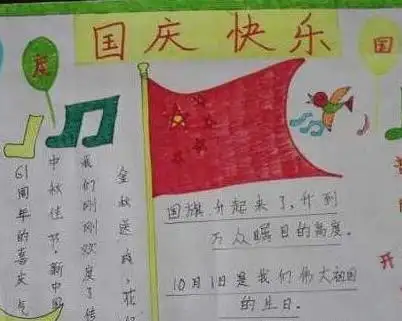 国庆快乐
国
金秋送爽，花
我们刚刚欢度了传
中秋佳节，新中国
61周年的喜庆气
国旗升起来了，升到
万众瞩目的高度。
10月1日是我们伟大祖国
的生日。
开